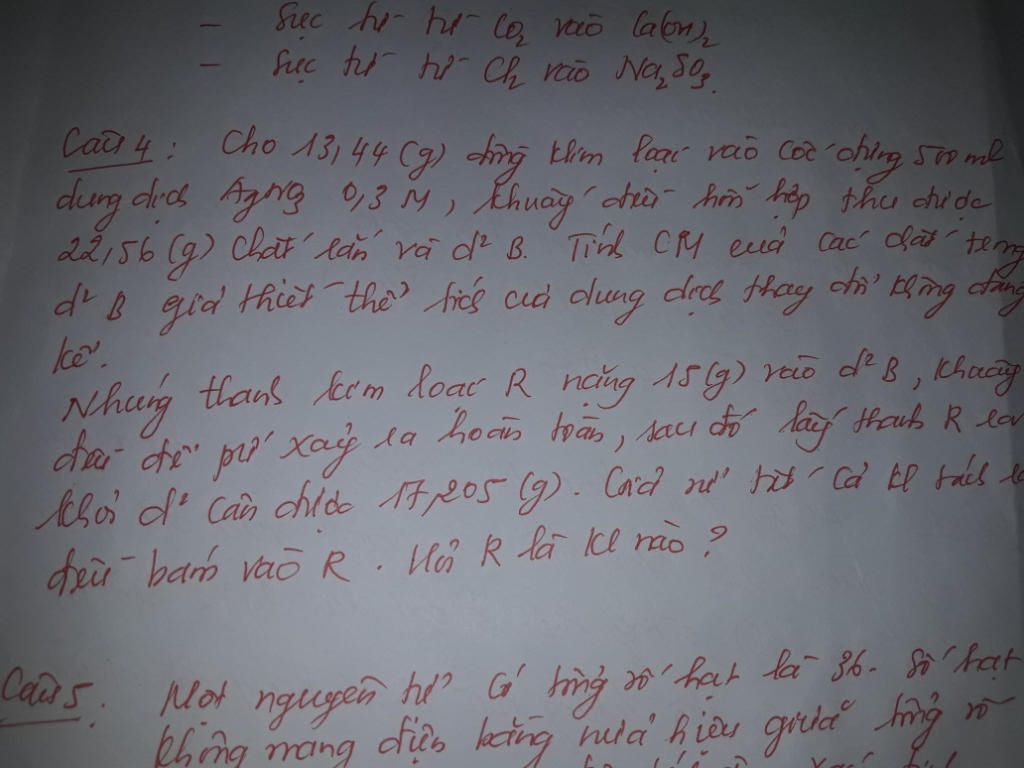 - Sục từ từ CO2 vào Ca(OH)2
- Sục từ từ Cl2 vào Na2SO3.
Câu 4: Cho 13,44 (g) đồng kim loại vào cốc đựng 500 ml
dung dịch AgNO3 0,3 M, khuấy đều hỗn hợp thu được
22,56 (g) chất rắn và d² B. Tính CM của các chất trong
d² B giả thiết thể tích của dung dịch thay đổi không đáng
kể.
Nhúng thanh kim loại R nặng 15 (g) vào d² B, khuấy
đều để pứ xảy ra hoàn toàn, sau đó lấy thanh R ra
khỏi d² cân được 17,205 (g). Giả sử tất cả kl tách ra
đều bám vào R. Hỏi R là kl nào?
Câu 5. Một nguyên tử có tổng số hạt là 36. Số hạt
không mang điện bằng nửa hiệu giữa tổng số